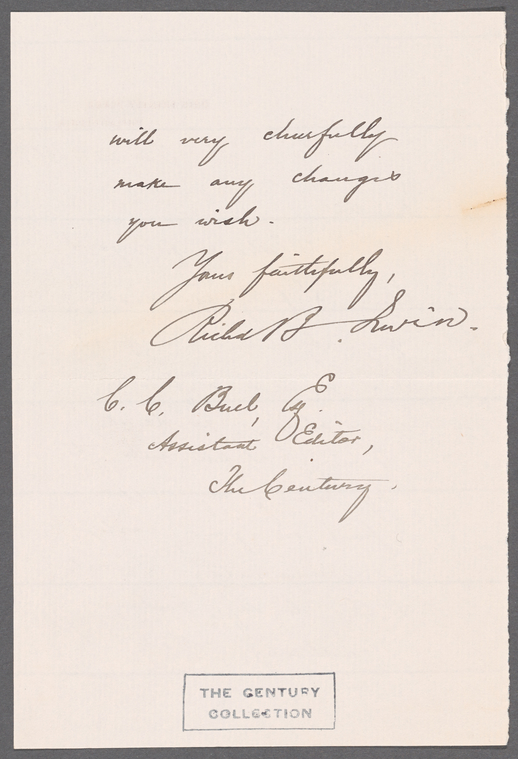 will very cheerfully
make any changes
you wish.
Yours faithfully,
Richd B. Irwin.
C. C. Buel, Esq.
Assistant Editor,
The Century.
THE CENTURY
COLLECTION